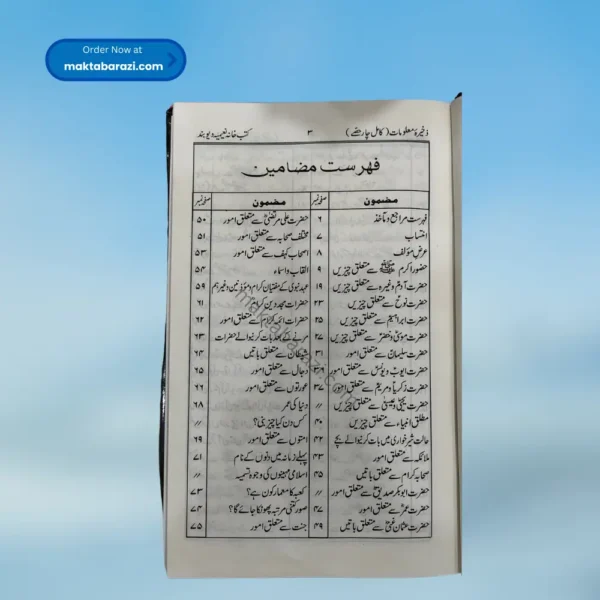 Order Now at
maktabarazi.com
ذخیرۂ معلومات (کامل چار حصے) ۳ کتب خانہ نعیمیہ دیوبند
فہرست مضامین
مضمون صفحہ نمبر مضمون صفحہ نمبر
فہرست مراجع و مآخذ ۶ حضرت علی مرتضیٰؓ سے متعلق امور ۵۰
انتساب ۷ مختلف صحابہ سے متعلق امور ۵۱
عرض مؤلف ۸ اصحاب کہف سے متعلق امور ۵۳
حضور اکرم ﷺ سے متعلق چیزیں ۹ القاب و اسماء ۵۴
حضرت آدم وغیرہ سے متعلق چیزیں ۱۹ عہد نبوی کے مفتیان کرام و مؤذنین وغیرہم ۵۹
حضرت نوحؑ سے متعلق چیزیں ۲۳ حضرات مجددین کرام ۶۱
حضرت ابراہیمؑ سے متعلق چیزیں ۲۵ حضرات ائمہ کرام سے متعلق امور ۶۲
حضرت موسیٰؑ و خضرؑ سے متعلق چیزیں ۲۷ مرنے کے بعد بات کرنیوالے حضرات ۶۳
حضرت سلیمانؑ سے متعلق امور ۳۱ شیطان سے متعلق باتیں ۶۴
حضرت ایوبؑ و یونسؑ سے متعلق امور ۳۸ دجال سے متعلق امور ۶۵
حضرت زکریاؑ و مریمؑ سے متعلق امور ۳۷ عورتوں سے متعلق امور ۶۶
حضرت یحییٰؑ و عیسیٰؑ سے متعلق چیزیں // دنیا کی عمر ۶۸
مطلق انبیاءؑ سے متعلق چیزیں ۴۰ کس دن کیا چیز بنی؟ //
حالت شیر خواری میں بات کرنیوالے بچے ۴۲ امتوں سے متعلق امور ۶۹
ملائکہ سے متعلق امور ۴۳ پہلے زمانہ میں دنوں کے نام ۷۱
صحابہ کرام سے متعلق باتیں ۴۵ اسلامی مہینوں کی وجوہ تسمیہ //
حضرت ابوبکر صدیقؓ سے متعلق امور // کعبہ کا معمار کون ہے؟ ۷۳
حضرت عمرؓ سے متعلق امور ۴۷ صور کتنی مرتبہ پھونکا جائے گا؟ ۷۴
حضرت عثمان غنیؓ سے متعلق باتیں ۴۹ جنت سے متعلق امور ۷۵
maktabarazi.com